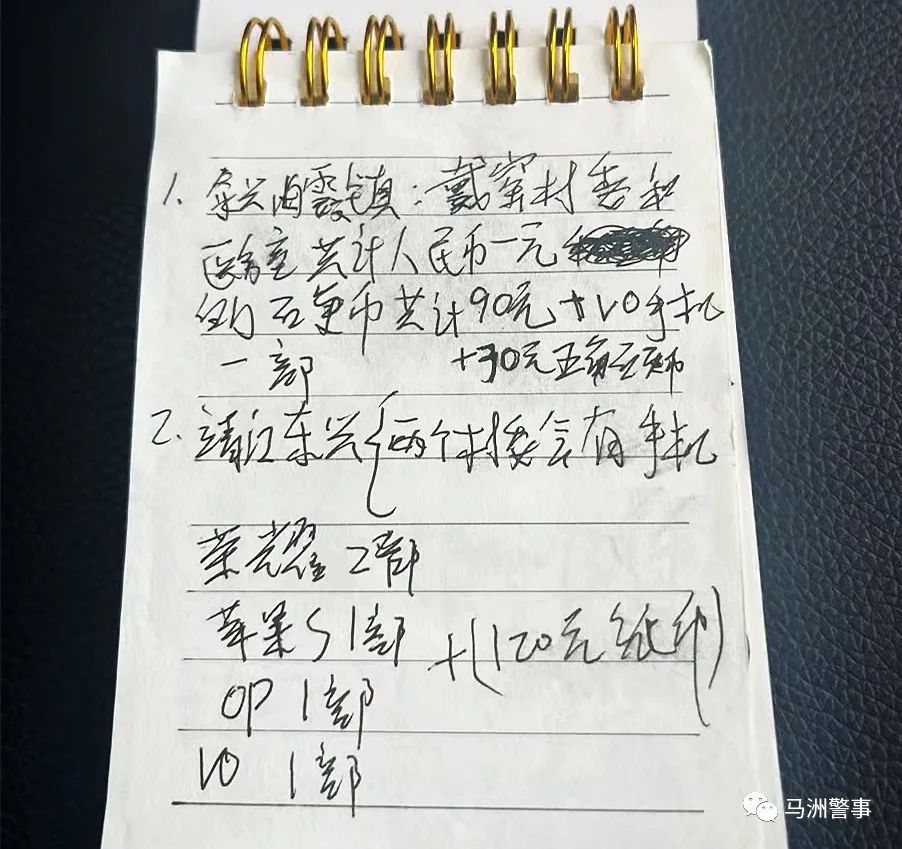 1. 泰兴曲霞镇:戴窑村委和
医务室共计人民币一元
的硬币共计90元+VO手机
一部 +30元五角硬币
2. 靖江东兴{两个村委会有手机
荣耀2部
苹果5 1部 +(120元纸币)
OP 1部
VO 1部
马洲警事